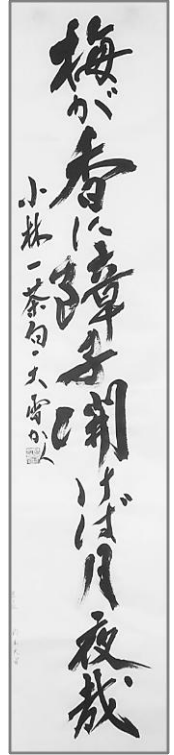 梅が香に障子開けば月夜哉
小林一茶句 大雪か人